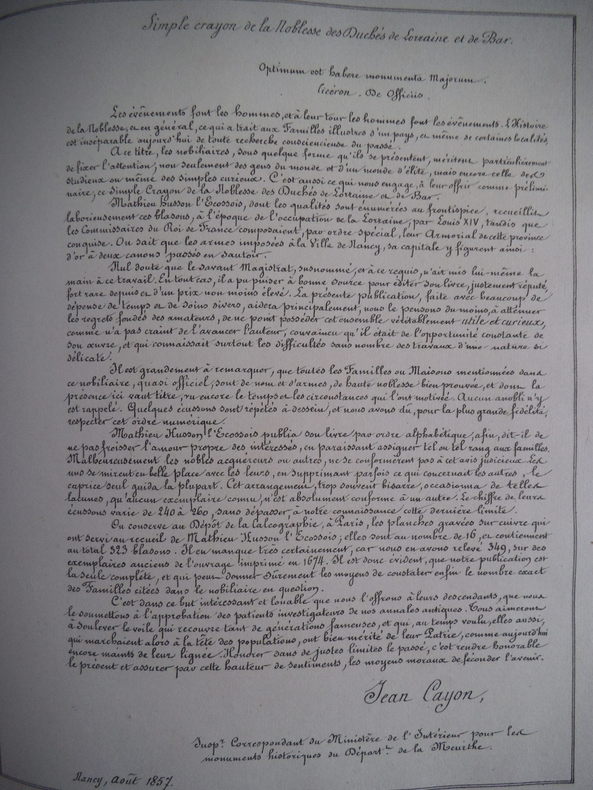 Simple crayon de la Noblesse des Duchés de Lorraine et de Bar.
Optimum est habere monumenta Majorum.
Cicéron. De Officiis.
Les évênements font les hommes, et à leur tour les hommes font les évênements. L'Histoire
de la Noblesse, et en général, ce qui a trait aux Familles illustres d'un pays, et même de certaines localités
est inséparable aujourd'hui de toute recherche consciencieuse du passé.
A ce titre, les nobiliaires, sous quelque forme qu'ils se présentent, méritent particulièrement
de fixer l'attention, non seulement des gens du monde et d'un monde d'élite, mais encore celle des
studieux ou même des simples curieux. C'est aussi ce qui nous engage, à leur offrir comme prélimi-
naire, ce Simple Crayon de la Noblesse des Duchés de Lorraine et de Bar.
Mathieu Husson l'Ecossois, dont les qualités sont énumérées au frontispice, recueillit
laborieusement ces blasons, à l'époque de l'occupation de la Lorraine, par Louis XIV, tandis que
les Commissaires du Roi de France composaient, par ordre spécial, leur Armorial de cette province
conquise. On sait que les armes imposées à la Ville de Nancy, sa capitale y figurent ainsi :
d'or à deux canons passés en sautoir.
Nul doute que le savant Magistrat, susnommé, et à ce requis, n'ait mis lui-même la
main à ce travail. En tout cas, il a pu puiser à bonne source pour éditer son livre, justement réputé,
fort rare depuis et d'un prix non moins élevé. La présente publication, faite avec beaucoup de
dépense de temps et de soins divers, aidera principalement, nous le pensons du moins, à atténuer
les regrets fondés des amateurs, de ne point posséder cet ensemble véritablement utile et curieux,
comme n'a pas craint de l'avancer l'auteur, convaincu qu'il était de l'opportunité constante de
son œuvre, et qui connaissait surtout les difficultés sans nombre des travaux d'une nature si
délicate.
Il est grandement à remarquer, que toutes les Familles ou Maisons mentionnées dans
ce nobiliaire, quasi officiel, sont de nom et d'armes, de haute noblesse bien prouvée, et dont la
présence ici vaut titre, vu encore le temps et les circonstances qui l'ont motivée. Aucun anobli n'y
est rappelé. Quelques écussons sont répétés à dessein, et nous avons dû, pour la plus grande fidélité,
respecter cet ordre numérique.
Mathieu Husson l'Ecossois publia son livre par ordre alphabétique, afin, dit-il de
ne pas froisser l'amour propre des intéressés, en paraissant assigner tel ou tel rang aux familles.
Malheureusement les nobles acquéreurs ou autres, ne se conformèrent pas à cet avis judicieux. Les
uns se mirent en belle place avec les leurs, en supprimant parfois ce qui concernait les autres ; le
caprice seul guida la plupart. Cet arrangement, trop souvent bisarre, occasionna de telles
lacunes, qu'aucun exemplaire connu, n'est absolument conforme à un autre. Le chiffre de leurs
écussons varie de 240 à 260, sans dépasser, à notre connaissance cette dernière limite.
On conserve au Dépôt de la Calcographie, à Paris, les planches gravées sur cuivre qui
ont servi au recueil de Mathieu Husson l'Ecossois ; elles sont au nombre de 16, et contiennent
au total 323 blasons. Il en manque très certainement, car nous en avons relevé 349, sur des
exemplaires anciens de l'ouvrage imprimé en 1674. Il est donc évident, que notre publication est
la seule complète, et qui peut donner sûrement les moyens de constater enfin le nombre exact
des Familles citées dans le nobiliaire en question.
C'est dans ce but intéressant et louable que nous l'offrons à leurs descendants, que nous
le soumettons à l'approbation des patients investigateurs de nos annales antiques. Tous aimeront
à soulever le voile qui recouvre tant de générations fameuses, et qui, au temps voulu, elles aussi,
qui marchaient alors à la tête des populations, ont bien mérité de leur Patrie, comme aujourd'hui
encore maints de leur lignée. Honorer dans de justes limites le passé, c'est rendre honorable
le présent et assurer par cette hauteur de sentiments, les moyens moraux de féconder l'avenir.
Jean Cayon,
Insp.r Correspondant du Ministère de l'Intérieur pour les
monuments historiques du Départ.t de la Meurthe.
Nancy, Août 1857.